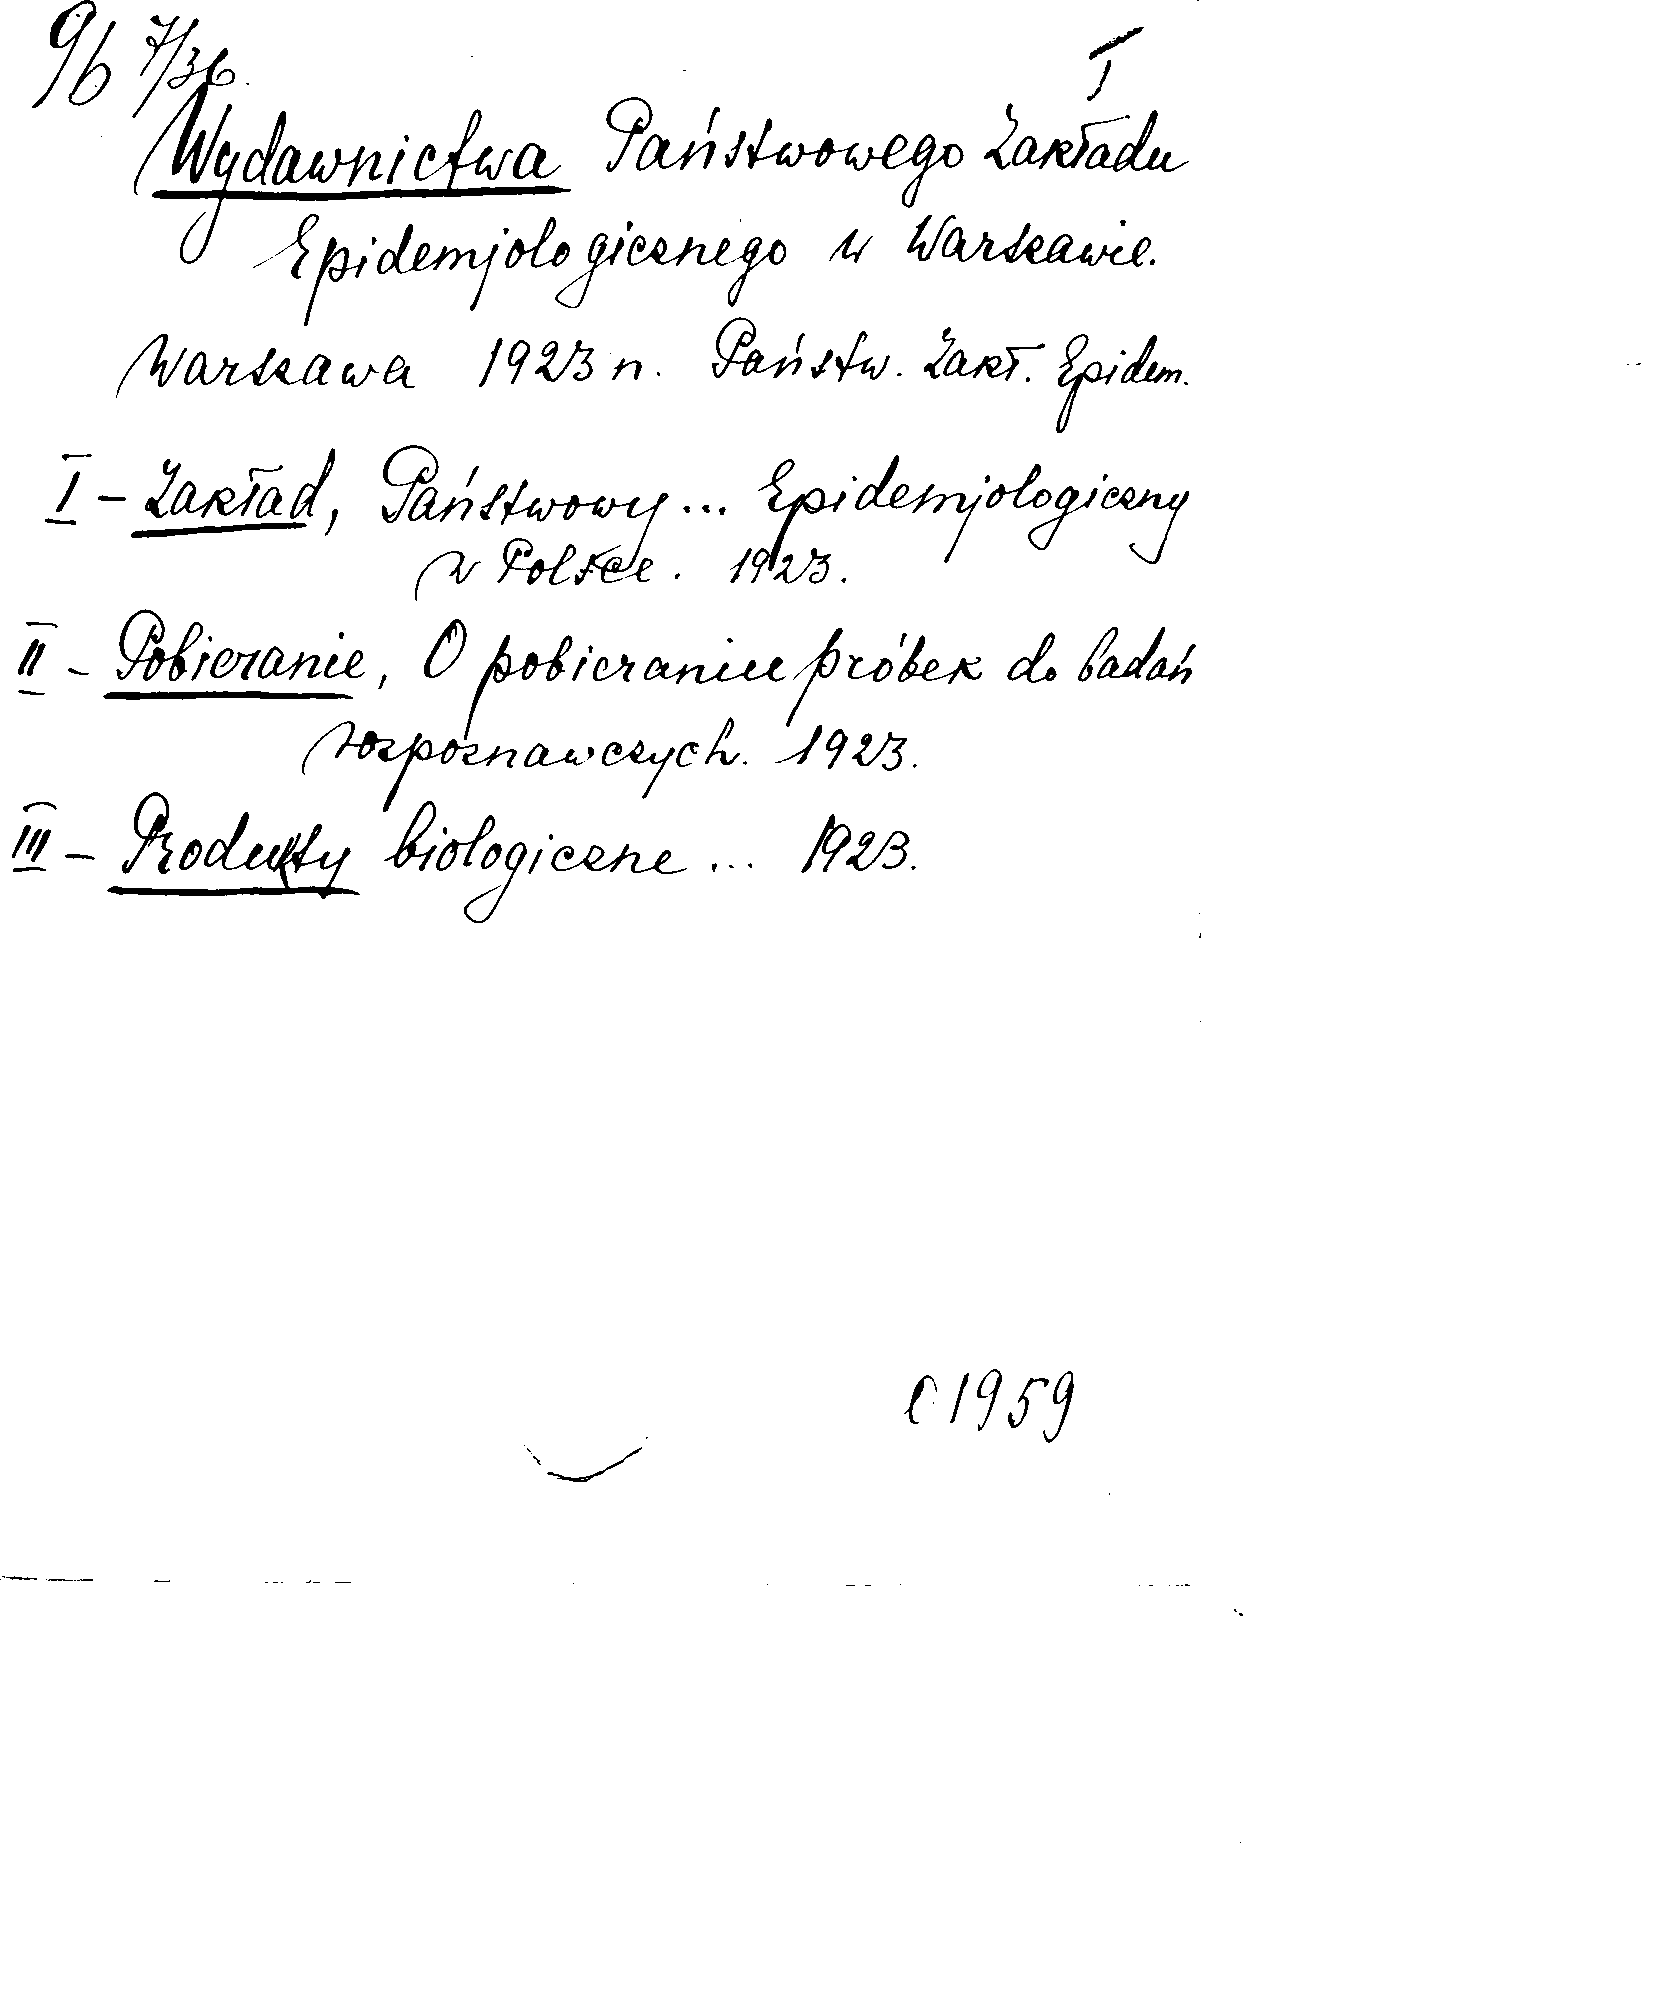 96 7/36. I
Wydawnictwa Państwowego Zakładu
Epidemjologicznego w Warszawie.
Warszawa 1923 n. Państw. Zakł. Epidem.
I - Zakład, Państwowy... Epidemjologiczny
w Polsce. 1923.
II - Pobieranie, O pobieraniu próbek do badań
rozpoznawczych. 1923.
III - Produkty biologiczne ... 1923.
C 1959